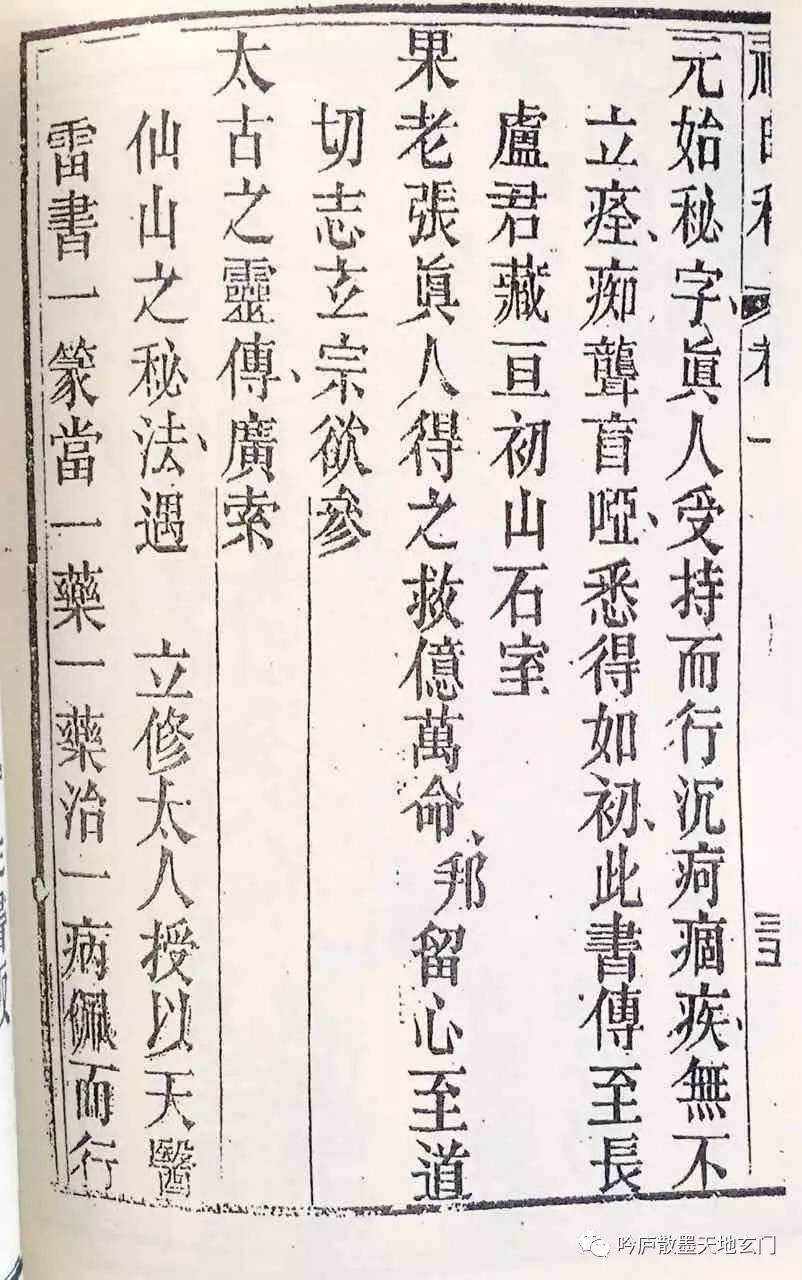 元始秘字、眞人受持而行沉疴痼疾、無不
立痊、痴聾盲啞、悉得如初、此書傳至長
盧君藏亘初山石室
果老張眞人得之救億萬命、邦留心至道
切志立宗欲參
太古之靈傳、廣索
仙山之秘法、遇 立修太人授以天醫
雷書一篆當一藥一藥治一病佩而行
吟庐散墨天地玄门